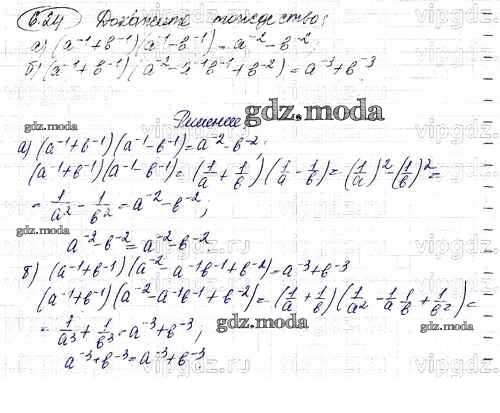 6.24 Докажите тождество:
а) (a⁻¹+b⁻¹)(a⁻¹-b⁻¹)=a⁻²-b⁻²;
б) (a⁻¹+b⁻¹)(a⁻²-a⁻¹b⁻¹+b⁻²)=a⁻³+b⁻³.
Решение
gdz.moda
gdz.moda
а) (a⁻¹+b⁻¹)(a⁻¹-b⁻¹)=a⁻²-b⁻²;
(a⁻¹+b⁻¹)(a⁻¹-b⁻¹)=(1/a+1/b)(1/a-1/b)=(1/a)²-(1/b)²=
=1/a²-1/b²=a⁻²-b⁻²;
gdz.moda
a⁻²-b⁻²=a⁻²-b⁻²
б) (a⁻¹+b⁻¹)(a⁻²-a⁻¹b⁻¹+b⁻²)=a⁻³+b⁻³
(a⁻¹+b⁻¹)(a⁻²-a⁻¹b⁻¹+b⁻²)=(1/a+1/b)(1/a²-1/a·1/b+1/b²)=
=1/a³+1/b³=a⁻³+b⁻³;
gdz.moda
gdz.moda
a⁻³+b⁻³=a⁻³+b⁻³
vipgdz.ru